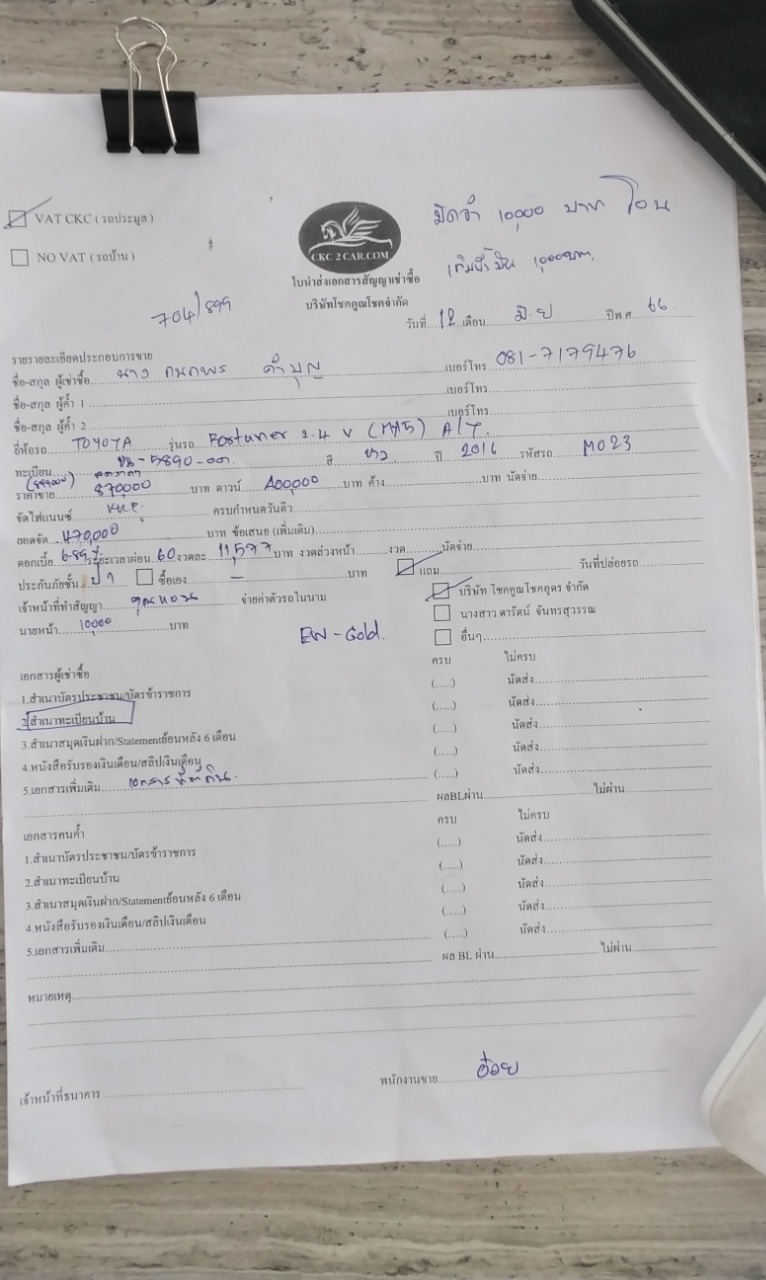 VAT CKC ( รถประมูล )
NO VAT ( รถบ้าน )
CKC 2 CAR.COM
มัดจำ 10,000 บาท โอน
เติมน้ำมัน 1,000บาท.
ใบนำส่งเอกสารสัญญาเช่าซื้อ
บริษัทโชคคูณโชคจำกัด
704/899
วันที่ 12 เดือน มิ.ย ปีพ.ศ. 66
รายรายละเอียดประกอบการขาย
ชื่อ-สกุล ผู้เช่าซื้อ นาง กนกพร คำบุญ เบอร์โทร 081-7179476
ชื่อ-สกุล ผู้ค้ำ 1 เบอร์โทร
ชื่อ-สกุล ผู้ค้ำ 2 เบอร์โทร
ยี่ห้อรถ TOYOTA รุ่นรถ Fortuner 2.4 V A/T.
ทะเบียน 5890 สี ปี 2016 รหัสรถ M023
(899000)
ราคาขาย 870000 บาท ดาวน์ 400,000 บาท ค้าง บาท นัดจ่าย
จัดไฟแนนซ์ ครบกำหนดวันดิว
ยอดจัด 470,000 บาท ข้อเสนอ (เพิ่มเติม)
ดอกเบี้ย 6.89 ระยะเวลาผ่อน 60 งวดละ 11,577 บาท งวดล่วงหน้า งวด นัดจ่าย
ประกันภัยชั้น ป1 ซื้อเอง - บาท แถม วันที่ปล่อยรถ
เจ้าหน้าที่ทำสัญญา จ่ายค่าตัวรถในนาม บริษัท โชคคูณโชคอุดร จำกัด
นางสาว ดารัตน์ จันทรสุวรรณ
นายหน้า 10000 บาท อื่นๆ
EW-Gold.
เอกสารผู้เช่าซื้อ ครบ ไม่ครบ
1.สำเนาบัตรประชาชน/บัตรข้าราชการ (.....) นัดส่ง
2.สำเนาทะเบียนบ้าน (.....) นัดส่ง
3.สำเนาสมุดเงินฝาก/Statementย้อนหลัง 6 เดือน (.....) นัดส่ง
4.หนังสือรับรองเงินเดือน/สลิปเงินเดือน (.....) นัดส่ง
5.เอกสารเพิ่มเติม เอกสารที่ดิน. (.....) นัดส่ง
ผลBLผ่าน ไม่ผ่าน
เอกสารคนค้ำ ครบ ไม่ครบ
1.สำเนาบัตรประชาชน/บัตรข้าราชการ (.....) นัดส่ง
2.สำเนาทะเบียนบ้าน (.....) นัดส่ง
3.สำเนาสมุดเงินฝาก/Statementย้อนหลัง 6 เดือน (.....) นัดส่ง
4.หนังสือรับรองเงินเดือน/สลิปเงินเดือน (.....) นัดส่ง
5.เอกสารเพิ่มเติม (.....) นัดส่ง
ผล BL ผ่าน ไม่ผ่าน
หมายเหตุ
เจ้าหน้าที่ธนาคาร พนักงานขาย อ๋อย